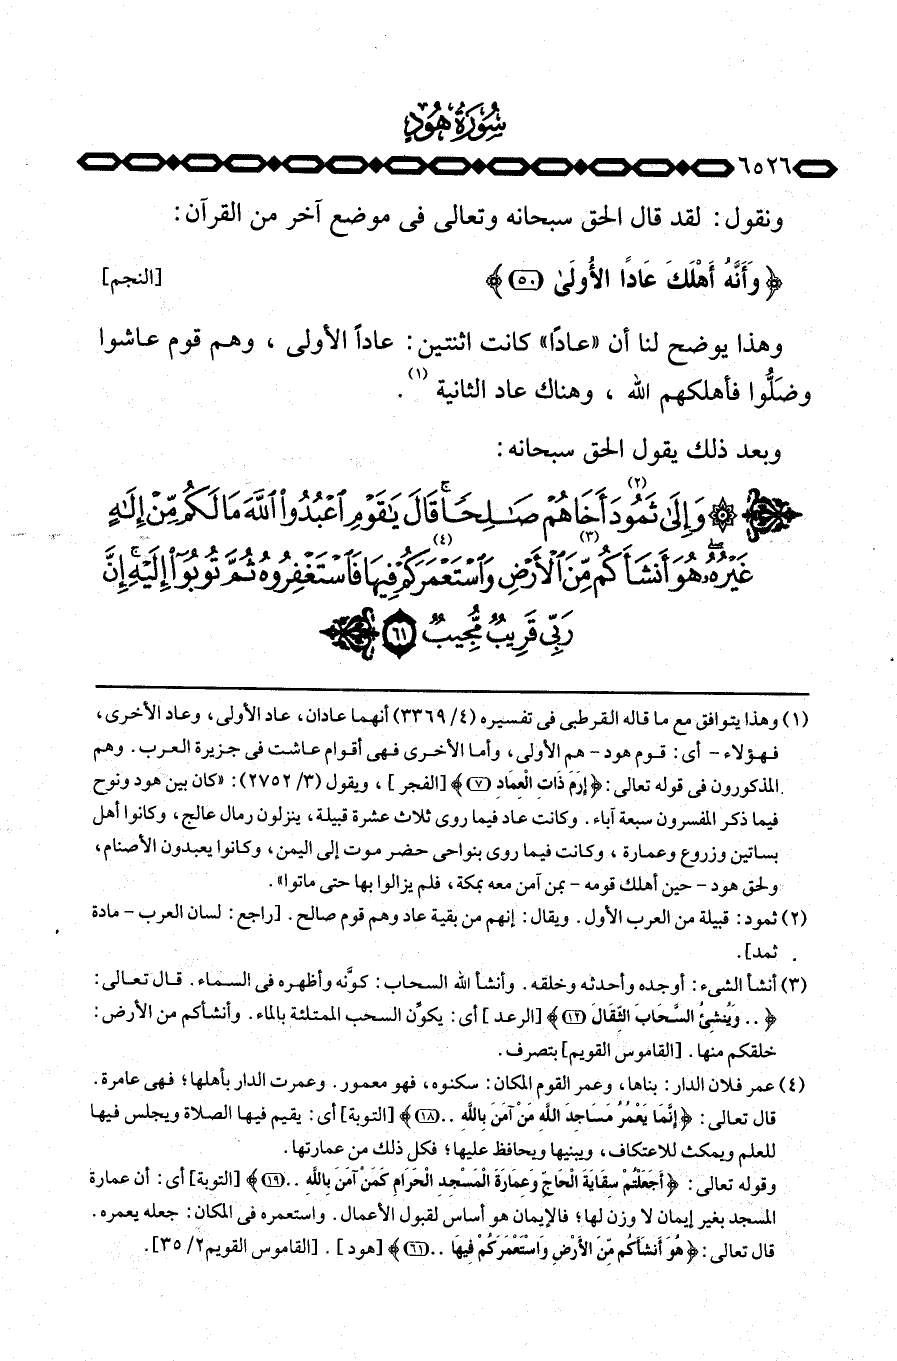 سُورَةُ هُودٍ
٦٥٢٦
ونقول: لقد قال الحق سبحانه وتعالى فى موضع آخر من القرآن:
﴿ وَأَنَّهُ أَهْلَكَ عَادًا الأُولَىٰ (٥٠) ﴾ [النجم]
وهذا يوضح لنا أن «عاداً» كانت اثنتين: عاداً الأولى ، وهم قوم عاشوا
وضَلُّوا فأهلكهم الله ، وهناك عاد الثانية (١) .
وبعد ذلك يقول الحق سبحانه:
۞ وَإِلَىٰ ثَمُودَ (٢) أَخَاهُمْ صَٰلِحًا ۚ قَالَ يَٰقَوْمِ ٱعْبُدُوا۟ ٱللَّهَ مَا لَكُم مِّنْ إِلَٰهٍ
غَيْرُهُۥ ۖ هُوَ أَنشَأَكُم (٣) مِّنَ ٱلْأَرْضِ وَٱسْتَعْمَرَكُمْ (٤) فِيهَا فَٱسْتَغْفِرُوهُ ثُمَّ تُوبُوٓا۟ إِلَيْهِ ۚ إِنَّ
رَبِّى قَرِيبٌ مُّجِيبٌ ٦١
(١) وهذا يتوافق مع ما قاله القرطبى فى تفسيره (٤/ ٣٣٦٩) أنهما عادان، عاد الأولى، وعاد الأخرى،
فهؤلاء - أى: قوم هود - هم الأولى، وأما الأخرى فهى أقوام عاشت فى جزيرة العرب. وهم
المذكورون فى قوله تعالى: ﴿ إِرَمَ ذَاتِ الْعِمَادِ (٧) ﴾ [الفجر] ، ويقول (٣/ ٢٧٥٢): «كان بين هود ونوح
فيما ذكر المفسرون سبعة آباء. وكانت عاد فيما روى ثلاث عشرة قبيلة، ينزلون رمال عالج، وكانوا أهل
بساتين وزروع وعمارة ، وكانت فيما روى بنواحى حضر موت إلى اليمن، وكانوا يعبدون الأصنام،
ولحق هود - حين أهلك قومه - بمن آمن معه بمكة، فلم يزالوا بها حتى ماتوا».
(٢) ثمود: قبيلة من العرب الأول. ويقال: إنهم من بقية عاد وهم قوم صالح. [راجع: لسان العرب - مادة
ثمد].
(٣) أنشأ الشىء: أوجده وأحدثه وخلقه. وأنشأ الله السحاب: كوَّنه وأظهره فى السماء. قال تعالى:
﴿ .. وَيُنْشِئُ السَّحَابَ الثِّقَالَ (١٢) ﴾ [الرعد] أى: يكوِّن السحب الممتلئة بالماء. وأنشأكم من الأرض:
خلقكم منها. [القاموس القويم] بتصرف.
(٤) عمر فلان الدار: بناها، وعمر القوم المكان: سكنوه، فهو معمور. وعمرت الدار بأهلها؛ فهى عامرة.
قال تعالى: ﴿ إِنَّمَا يَعْمُرُ مَسَاجِدَ اللَّهِ مَنْ آمَنَ بِاللَّهِ .. (١٨) ﴾ [التوبة] أى: يقيم فيها الصلاة ويجلس فيها
للعلم ويمكث للاعتكاف، ويبنيها ويحافظ عليها؛ فكل ذلك من عمارتها.
وقوله تعالى: ﴿ أَجَعَلْتُمْ سِقَايَةَ الْحَاجِّ وَعِمَارَةَ الْمَسْجِدِ الْحَرَامِ كَمَنْ آمَنَ بِاللَّهِ .. (١٩) ﴾ [التوبة] أى: أن عمارة
المسجد بغير إيمان لا وزن لها؛ فالإيمان هو أساس لقبول الأعمال. واستعمره فى المكان: جعله يعمره.
قال تعالى: ﴿ هُوَ أَنشَأَكُم مِّنَ الأَرْضِ وَاسْتَعْمَرَكُمْ فِيهَا .. (٦١) ﴾ [هود] . [القاموس القويم ٢/ ٣٥].